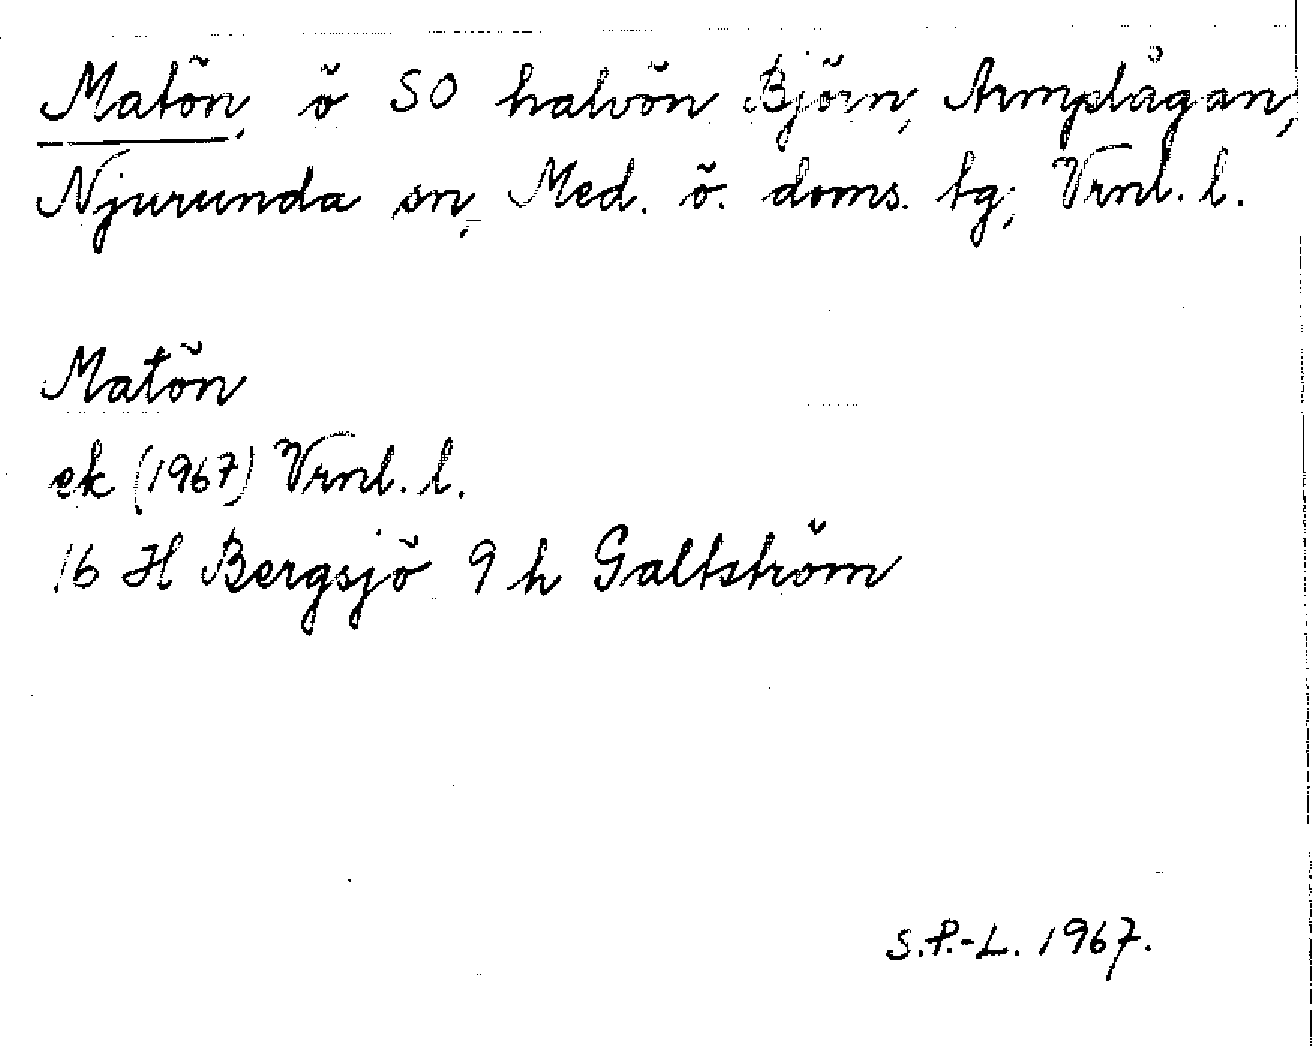 Matön, ö SO halvön Björn, Armplågan,
Njurunda sn, Med. ö. doms. tg, Vrnl. l.
Matön
ek (1967) Vrnl. l.
16 H Bergsjö 9 h Galtström
S.P.-L. 1967.